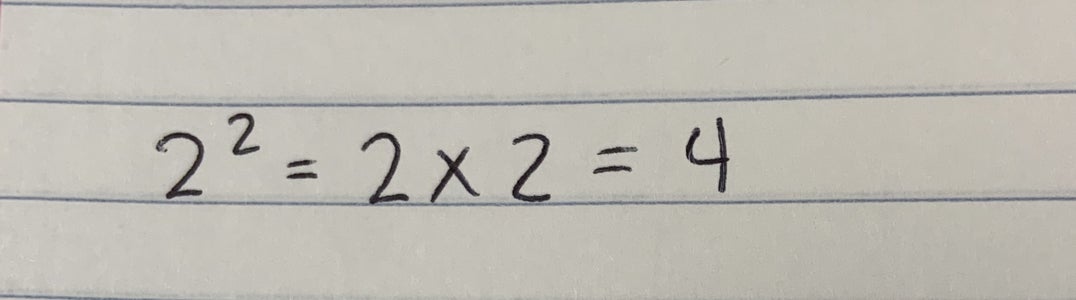 2² = 2 × 2 = 4